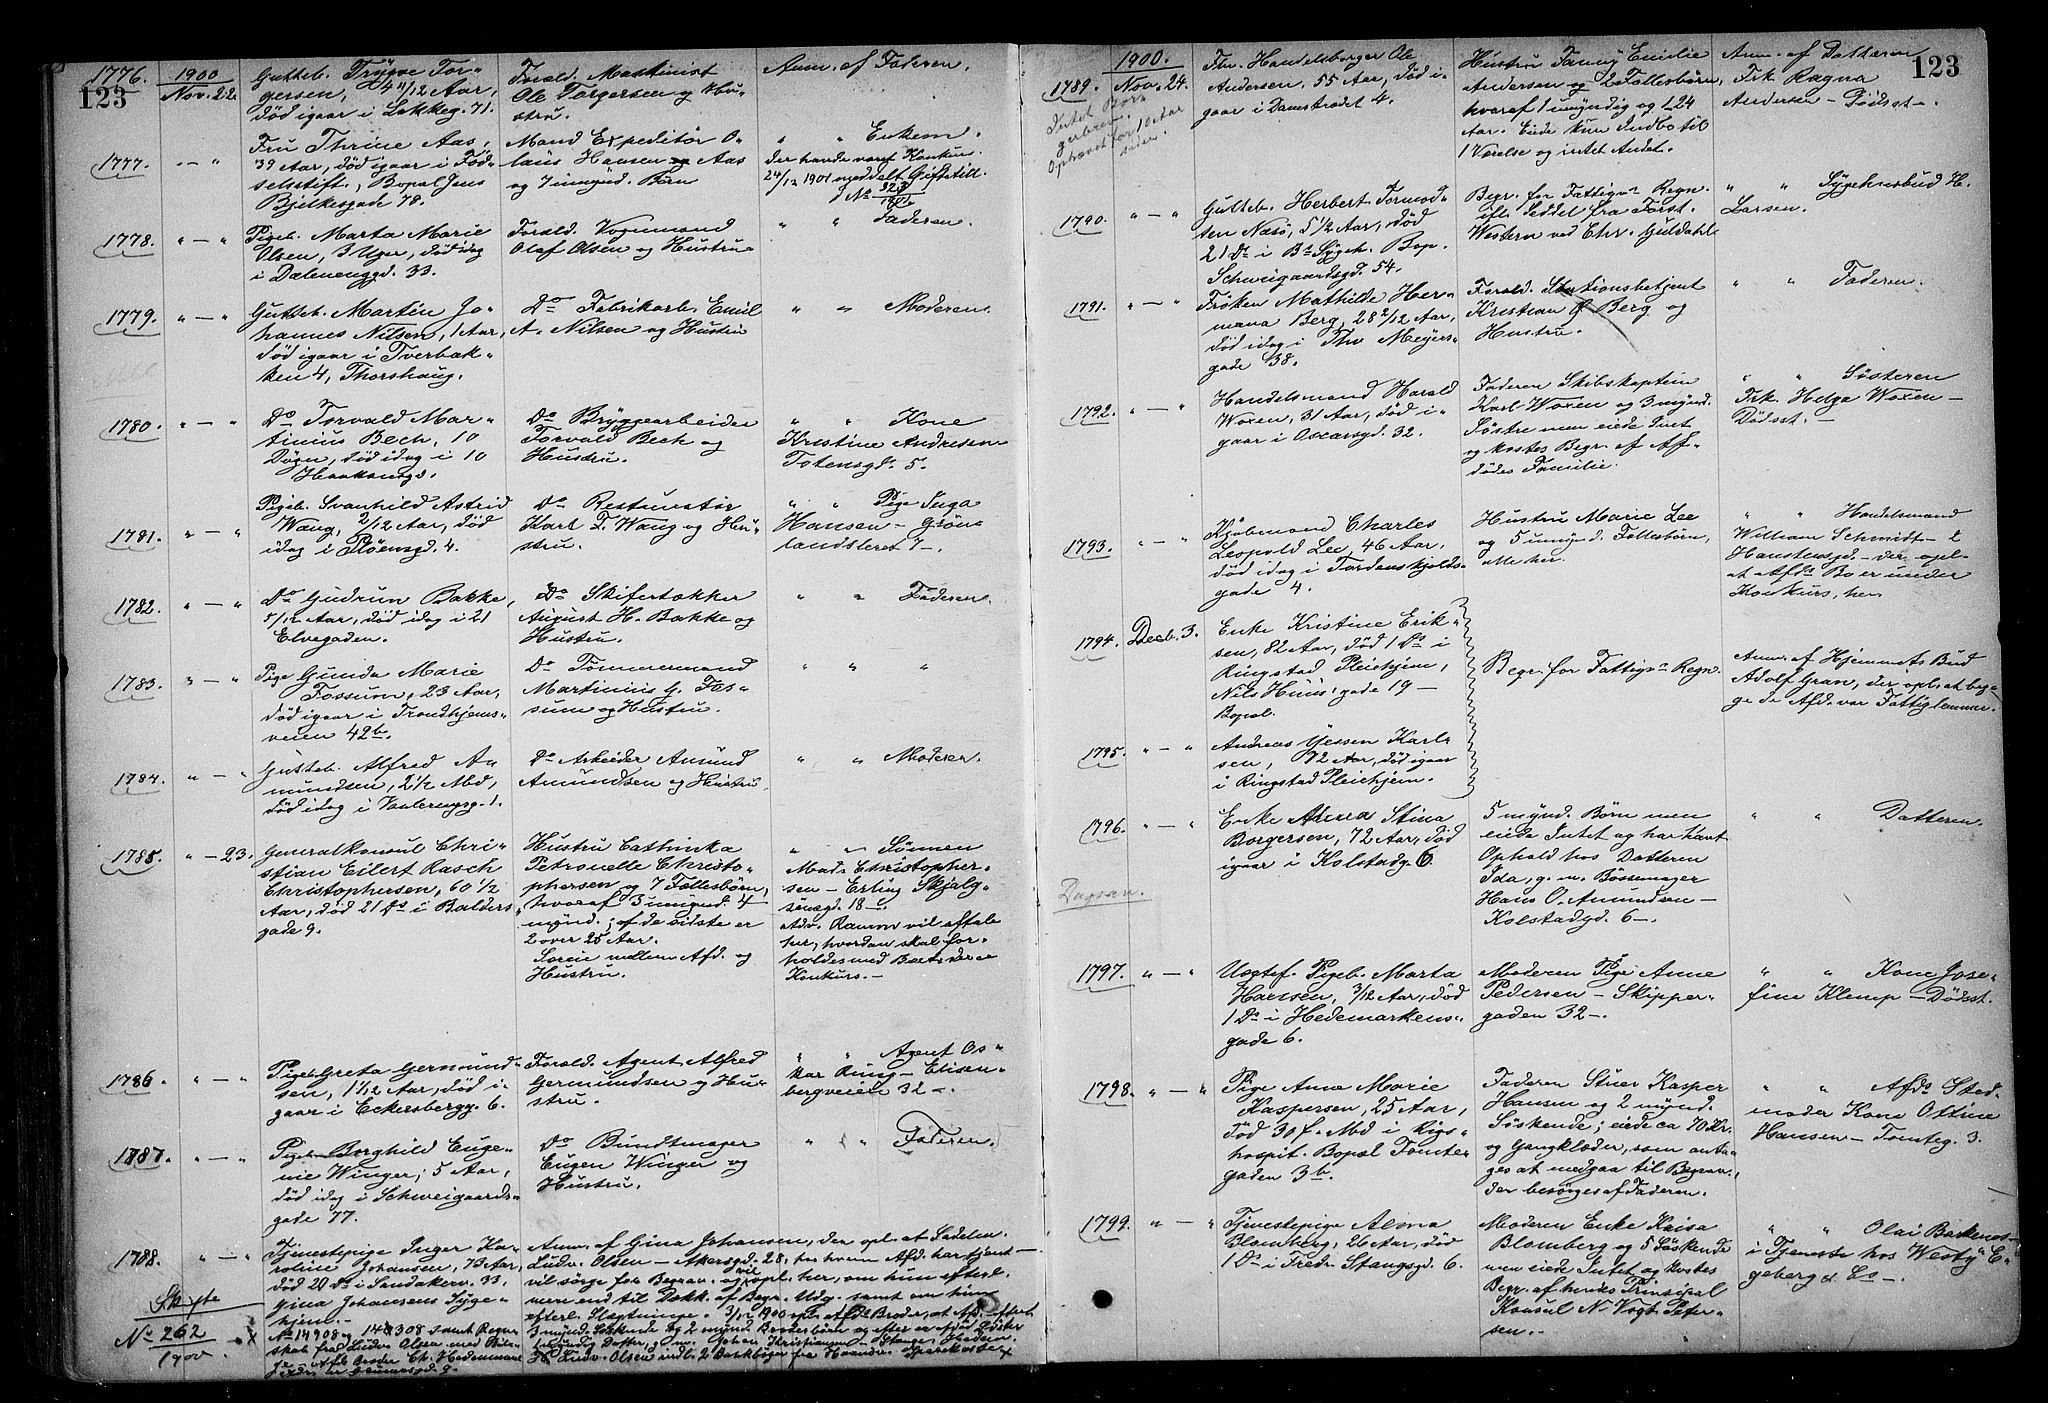 123
1776.
1900
Nov. 22.
Gutteb. Trygve Tor-
gersen, 4 11/12 Aar,
død igaar i Lakkeg. 71.
Forald. Maskinist
Ole Torgersen og Hu-
stru.
Anm. af Faderen.
1777.
" — "
Fru Thrine Aas,
39 Aar, død igaar i Fød-
selsstift., Bopal Jens
Bjelkesgade 78.
Mand Expeditør O-
laus Hansen Aas
og 7 umynd. Børn
" " Enkem.
der havde varet Konkurs.
24/12 1901 meddelt Giftetill.
1778.
" — "
Pigeb. Marta Marie
Olsen, 3 Uger, død idag
i Dælenenggd. 33.
Forald. Vognmand
Olaf Olsen og Hustru
" " Faderen.
1779.
" — "
Gutteb. Martin Jo-
hannes Nilsen, 1 Aar,
død igaar i Tverbak-
ken 4, Thorshaug.
Do Fabrikarb. Emil
A. Nilsen og Hustru
" " Moderen.
1780.
" — "
Do Torvald Mar-
tinius Bech, 10
Døgn, død idag i 10
Haakonsgd.
Do Bryggearbeider
Torvald Bech og
Hustru.
" " Kone
Kristine Andresen
Totensgd. 5.
1781.
" — "
Pigeb. Svanhild Astrid
Wang, 2/12 Aar, død
idag i Pløensgd. 4.
Do Restauratør
Karl F. Wang og Hu-
stru.
" " Pige Inga
Hansen — Grøn-
landsleret 7 —.
1782.
" — "
Do Gudrun Bakke,
5/12 Aar, død idag i 21
Elvegaden.
Do Skifertækker
August H. Bakke og
Hustru.
" " Faderen.
1783.
" — "
Pige Gunda Marie
Fossum, 23 Aar,
død igaar i Trondhjems-
veien 42b.
Do Tømmermand
Martinius G. Fos-
sum og Hustru.
" " "
1784.
" — "
Gutteb. Alfred A-
mundsen, 2 1/2 Md,
død idag i Vaalerenggd. 1.
Do Arbeider Amund
Amundsen og Hustru
" " Moderen.
1785.
" — 23.
Generalkonsul Chri-
stian Eilert Rasch
Christophersen, 60 1/2
Aar, død 21 Ds i Balders-
gade 9.
Hustru Cathinka
Petronelle Christo-
phersen og 7 Fællesbørn,
hvoraf 3 umynd. 4
mynd.; af de sidste er
2 over 25 Aar.
Særeie mellem Afd. og
Hustru.
" " Sønnen
Mads Christopher-
sen — Erling Skjalg-
sønsgd. 18 —.
Adv. Ramm vil aftale
her, hvordan skal for-
holdes med Boet; der er
Konkurs. —
1786
" — "
Pigeb. Greta Germund-
sen, 1 1/12 Aar, død i-
gaar i Eckersbergg. 6.
Forald. Agent Alfred
Germundsen og Hu-
stru.
" " Agent Os-
kar Ring — Elisen-
bergveien 32 —.
1787.
" — "
Pigeb. Borghild Euge-
nie Winger, 5 Aar,
død idag i Schweigaards-
gade 77.
Do Bundtmager
Eugen Winger og
Hustru.
" " Faderen.
1788.
" — "
Skifte
No 262
1900
Tjenestepige Inger Ka-
roline Johansen, 73 Aar,
død 20 Ds i Sandakerv. 33.
Gina Johansens Syge-
hjem. —
Anm. af Gina Johansen, der opl. at Sadelm.
Ludv. Olsen — Akersgd. 28, hos hvem Afd. har tjent —
vil sørge for Begrav. og vil opl. her, om hun efterl.
mere end til Dækk. af Begr. Udg. samt om hun
efterl. Slægtninge. 3/12 1900 opl. Afds Broder, at Afd. efterl.
3 mynd. Søskende og 2 mynd. Broderbørn og efter en afdød Søster
No 14908 og 14308 samt Regn-
skab fra Ludv. Olsen
Johan Kristiansen — Stange, Hedem.
Ludv. Olsen indl. 2 Bankbøger
123
1789.
1900.
Nov. 24.
Intet Bor-
gerbrev.
Ophævet for 10 Aar
siden.
Fhv. Handelsborger Ole
Andersen, 55 Aar, død i-
gaar i Damstrædet 4.
Hustru Fanny Emilie
Andersen og 2 Fællesbørn,
hvoraf 1 umyndig og 1 24
Aar. Eiede kun Indbo til
1 Værelse og intet Andet.
Anm. af Datteren
Frk. Ragna
Andersen — Dødsst —.
1790.
" — "
Gutteb. Herbert Tormod-
sen Næsø, 5 1/2 Aar, død
21 Ds i Bs Sygeh. Bop.
Schweigaardsgd. 54.
Begr. for Fattigvs Regn.
ifl. Seddel fra Forst.
Western ved Chr. Guldahl
" " Sygehusbud H.
Larsen.
1791.
" — "
Frøken Mathilde Her-
mana Berg, 28 2/12 Aar,
død idag i Thv Meyers-
gade 38.
Forald. Stationsbetjent
Kristian Berg og
Hustru.
" " Faderen.
1792.
" — "
Handelsmand Harald
Woxen, 31 Aar, død i-
gaar i Oscarsgd. 32.
Faderen Skibskaptein
Karl Woxen og 3 mynd.
Søstre men eiede Intet
og kostes Begr. af Af-
dødes Familie.
" " Søsteren
Frk. Helga Woxen —
Dødsst. —
1793.
" — "
Kjøbmand Charles
Leopold Lee, 46 Aar,
død idag i Tordenskjolds-
gade 4.
Hustru Marie Lee
og 5 umynd. Fællesbørn,
alle her.
" " Handelsmand
William Schmidt — 2
Hanstensgd. — der opl.
at Afds Bo er under
Konkurs, her.
1794.
Decb. 3.
Enke Kristine Erik-
sen, 82 Aar, død 1 Ds i
Ringstad Pleiehjem,
Nils Huus' gade 19 —
Bopal.
Begr. for Fattigvs Regn.
Anm. af Hjemmets Bud
Adolf Gran, der opl. at beg-
ge de Afd. var Fattiglemmer.
1795.
" — "
Andreas Yessen Karl-
sen, 72 Aar, død igaar
i Ringstad Pleiehjem.
1796.
" — "
Enke Anna Stina
Borgersen, 72 Aar, død
igaar i Kolstadg. 6.
5 mynd. Børn men
eiede Intet og har havt
Ophold hos Datteren
Ida, g. m. Bøssemager
Hans O. Amundsen —
Kolstadgd. 6 —.
" " Datteren.
1797.
" — "
Uægtef. Pigeb. Marta
Hansen, 3/12 Aar, død
1 Ds i Hedemarkens-
gade 6.
Moderen Pige Anne
Pedersen — Skipper-
gaden 32 —.
" " Kone Jose-
fine Klemp — Dødsst.
1798.
" — "
Pige Anna Marie
Kaspersen, 25 Aar,
død 30 f. Md i Rigs-
hospit. Bopal Tomte-
gaden 3b.
Faderen Stuer Kasper
Hansen og 2 mynd.
Søskende; eiede ca 70 Kr.
og Gangklæder, som anta-
ges at medgaa til Begrav.,
der besørges af Faderen.
" " Afds Sted-
moder Kone Ottine
Hansen — Tomteg. 3.
1799.
" — "
Tjenestepige Alma
Blomberg, 26 Aar, død
1 Ds i Fredr. Stangsgd. 6.
Moderen Enke Kaisa
Blomberg og 5 Søskende
men eiede Intet og kostes
Begr. af hendes Principal
Konsul N. Vogt Peter-
sen. —
" " Olai Bakken —
i Tjeneste hos Westby E-
geberg & Co —.